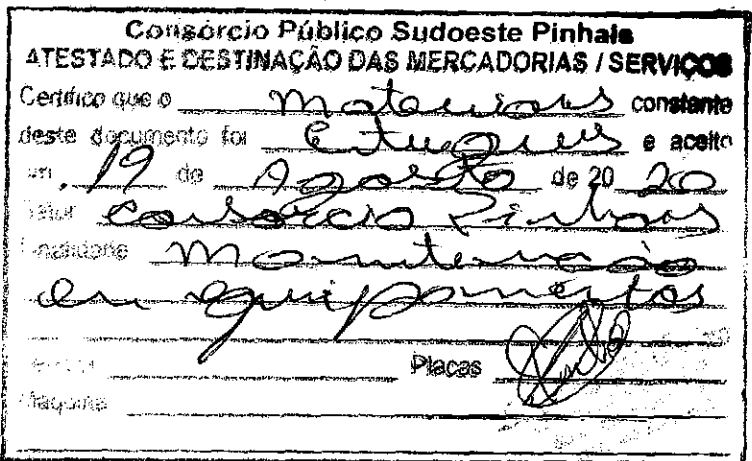 Consórcio Público Sudoeste Pinhais
ATESTADO E DESTINAÇÃO DAS MERCADORIAS / SERVIÇOS
Certifico que o materiais constante
deste documento foi entregues e aceito
em, 19 de Agosto de 20 20
Setor Consorcio Pinhais
Finalidade Manutenção
em equipamentos
Placas
Maquina